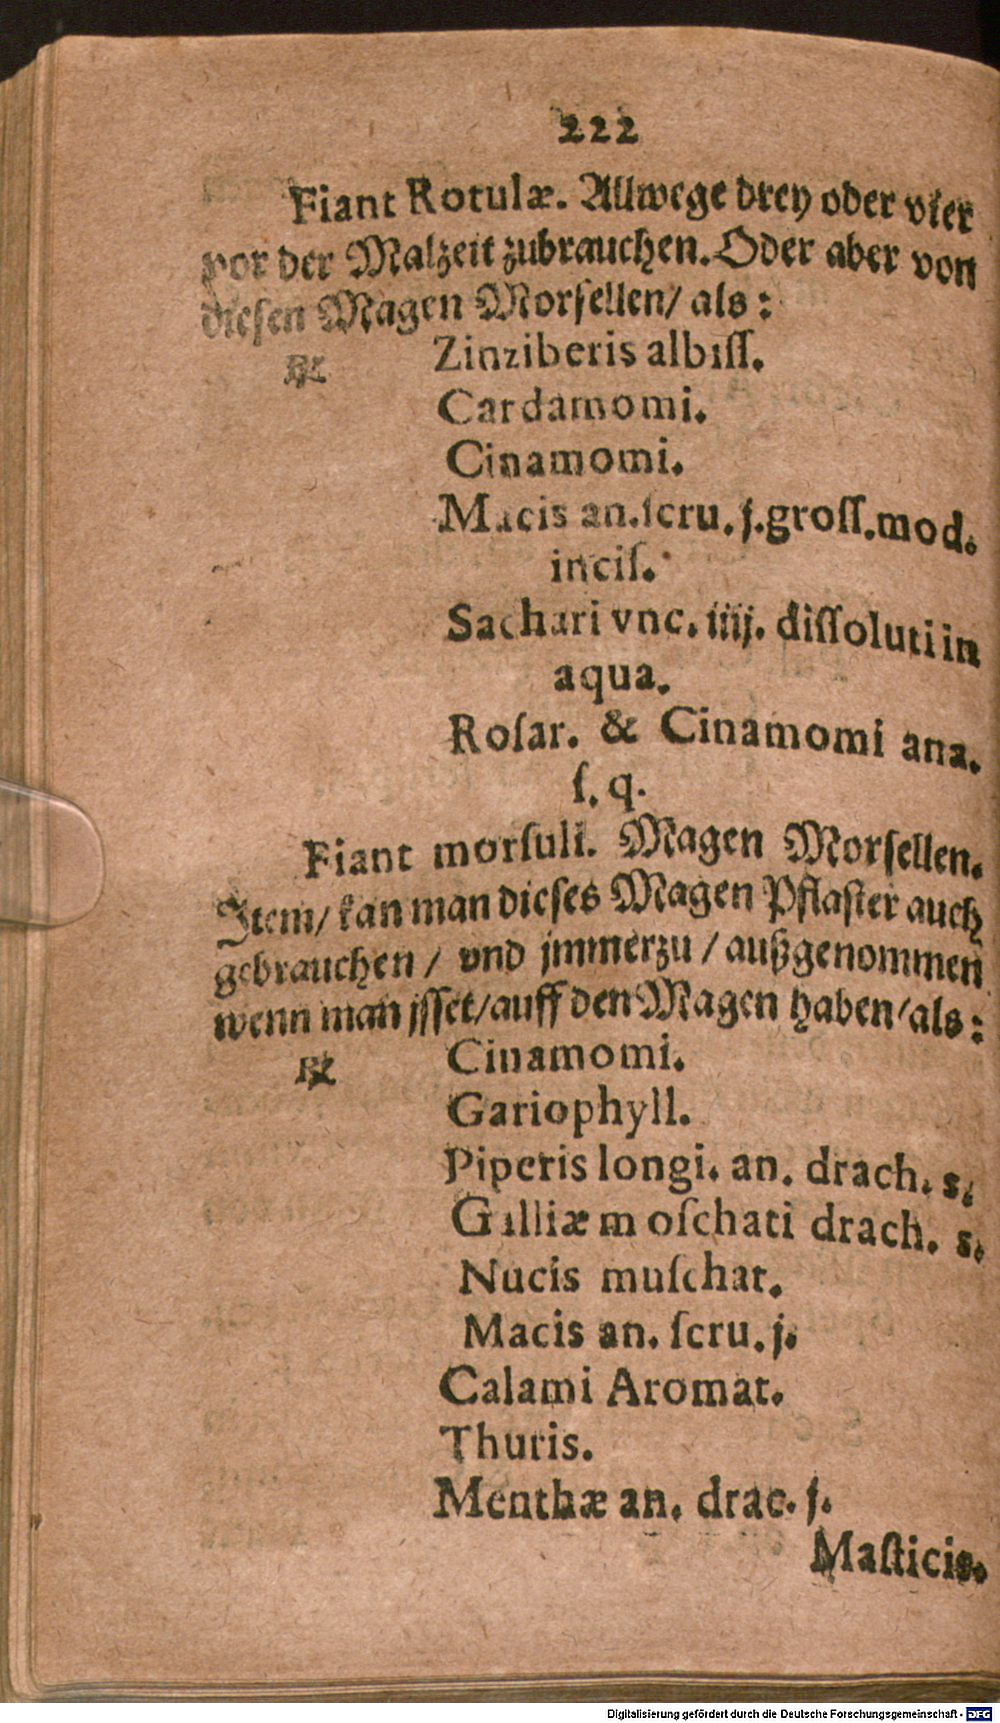 222
Fiant Rotulæ. Allwege drey oder vier
vor der Malzeit zubrauchen. Oder aber von
diesen Magen Morsellen/ als:
℞ Zinziberis albiſſ.
Cardamomi.
Cinamomi.
Macis an. ſcru. j. groſſ. mod.
inciſ.
Sachari vnc. iiij. diſſoluti in
aqua.
Roſar. & Cinamomi ana.
ſ. q.
Fiant morſuli. Magen Morſellen.
Item/ kan man dieſes Magen Pflaſter auch
gebrauchen / vnd jmmerzu / außgenommen
wenn man jſſet/ auff den Magen haben/ als:
℞ Cinamomi.
Gariophyll.
Piperis longi. an. drach. s.
Galliæ moſchati drach. s.
Nucis muſchat.
Macis an. ſcru. j.
Calami Aromat.
Thuris.
Menthæ an. drac. j.
Maſticis.
Digitalisierung gefördert durch die Deutsche Forschungsgemeinschaft - DFG